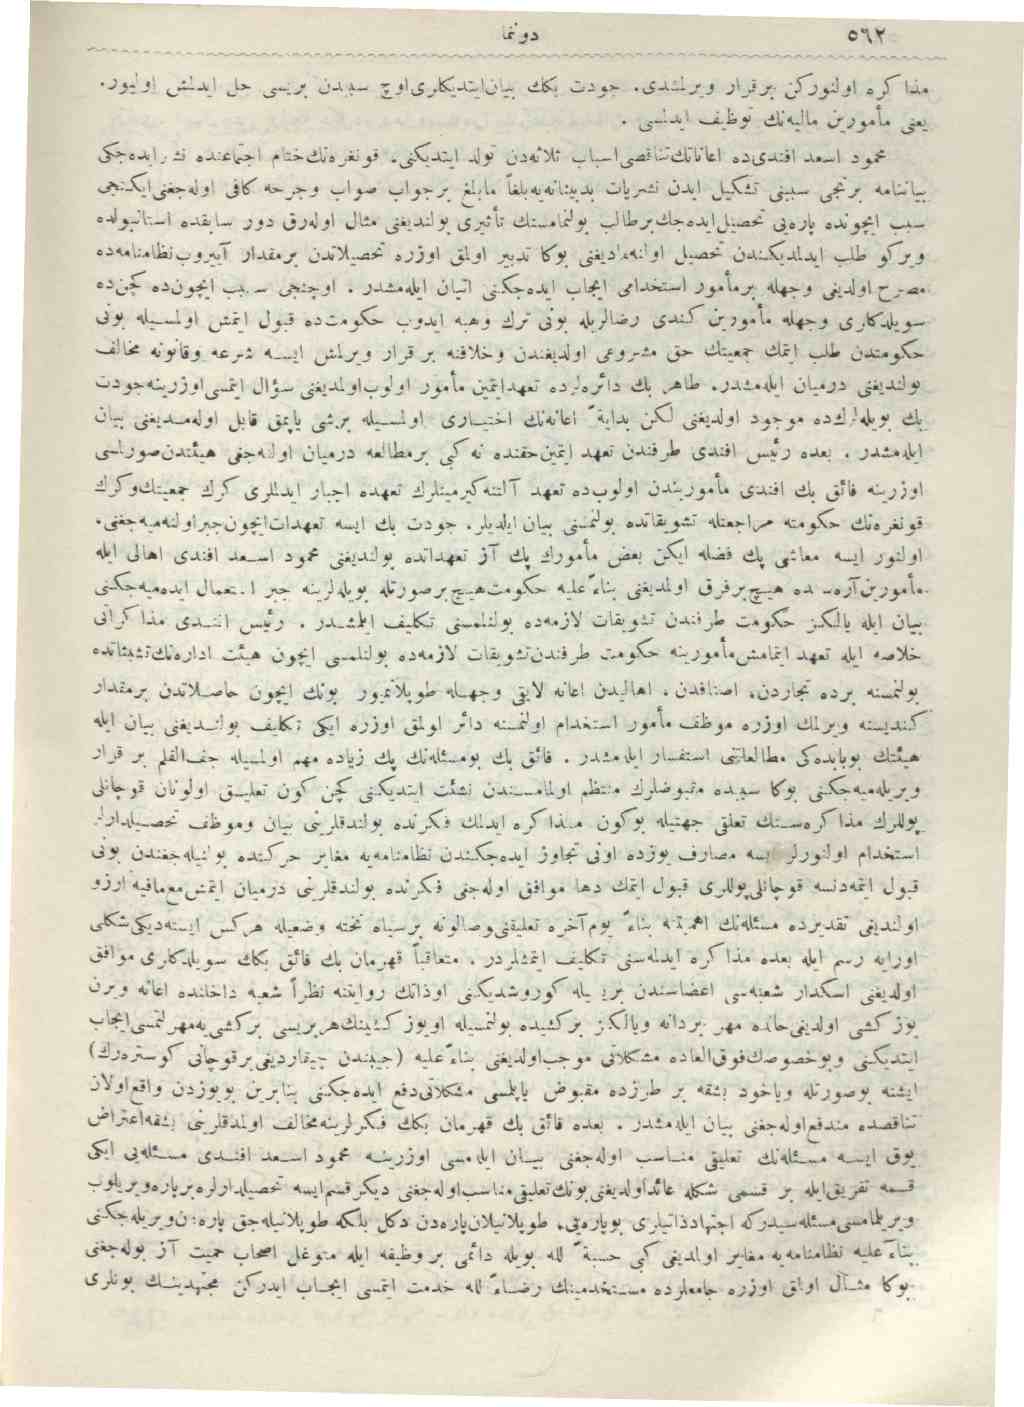 ٥٦٢
دونما
مذاكره اولنوركن برقرار ويرلمشدى. جودت بكك بيان ايتديكلرى اوچ سببدن بريسى حل ايدلمش اوليور.
يعنى مأمورين ماليه نك توظيف ايدلمسى .
محمود اسعد افندى ده اعاناتك تناقصى اسباب ثلاثه دن تولد ايتديكنى، قونغره نك ختام اجتماعنده نشر ايده جكى
بياننامه برنجى سببنى تشكيل ايدن نشريات بدبينانه يه بلغاً مابلغ برجواب صواب وجرحه كافى اوله جغنى ايكنجى
سبب ايچونده پاره يى تحصيل ايده جك برطالب بولنمامسنك تأثيرى بولنديغنى مثال اوله رق دور سابقده استانبولده
ويركو طلب ايدلمديكندن تحصيل اولنه مديغنى بوكا تدبير اولمق اوزره تحصيلاتدن برمقدار آييروب نظامنامه ده
مصرح اولديغى وجهله برمأمور استخدامى ايجاب ايده جكنى اتيان ايله مشدر . اوچنجى سبب ايچون ده كچن ده
سويلدكلرى وجهله مأمورين كندى رضالريله بونى ترك وهبه ايدوب حكومت ده قبول ايتمش اولمسيله بونى
حكومتدن طلب ايتمك جمعيتك حق مشروعى اولديغندن وخلافنه بر قرار ويرلمش ايسه شرعه وقانونه مخالف
بولنديغنى درميان ايله مشدر. طاهر بك دائره لرده تعهد ايتمين مأمور اولوب اولمديغنى سؤال ايتمسى اوزرينه جودت
بك بويله لرك ده موجود اولديغنى لكن بداية ً اعانه نك اختيارى اولمسيله برشى ياپمق قابل اوله مديغنى بيان
ايله مشدر . بعده رئيس افندى طرفندن تعهد ايتمين حقنده نه كبى برمطالعه درميان اولنه جغى هيئتدن صورلمسى
اوزرينه فائق بك افندى مأموريندن اولوب ده تعهد آلتنه كيرمينلرك تعهده اجبار ايدلملرى كرك جمعيتك وكرك
قونغره نك حكومته مراجعتله تشويقاتده بولنمسنى بيان ايلديلر. جودت بك ايسه تعهدات ايچون جبر اولنه ميه جغنى،
اولنور ايسه معاشى پك فضله ايكن بعض مأمورك پك آز تعهداتده بولنديغنى محمود اسعد افندى اهالى ايله
مأمورين آره سنده هيچ برفرق اولمديغنى بناءً عليه حكومت هيچ برصورتله بويله لرينه جبر استعمال ايده ميه جكنى
بيان ايله يالكز حكومت طرفندن تشويقات لازمه ده بولنلمسنى تكليف ايلمشدر . رئيس افندى مذاكراتى
خلاصه ايله تعهد ايتمامش مأمورينه حكومت طرفندن تشويقات لازمه ده بولنلمسى ايچون هيئت اداره نك تشبثاتده
بولنمسنه برده تجاردن، اصنافدن، اهاليدن اعانه لايقى وجهله طوپلانميور بونك ايچون حاصلاتدن برمقدار
كنديسنه ويرلمك اوزره موظف مأمور استخدام اولنمسنه دائر اولمق اوزره ايكى تكليف بولنديغنى بيان ايله
هيئتك بوبابده كى مطالعاتنى استفسار ايله مشدر . فائق بك بومسئله نك پك زياده مهم اولمسيله جف القلم بر قرار
ويريله ميه جكنى بوكا سببده مقبوضلرك منتظم اولمامسندن نشئت ايتديكنى كچن كون تعليق اولونان قوچانلى
پوللرك مذاكره سنك تعلقى جهتيله بوكون مذاكره ايدلمك فكرنده بولندقلرينى بيان وموظف تحصيلدارلر
استخدام اولنورلر ايسه مصارف يوزده اونى تجاوز ايده جكندن نظامنامه يه مغاير حركتده بولنيله جغندن بونى
قبول ايتمه دنسه قوچانلى پوللرى قبول ايتمك دها موافق اوله جغى فكرنده بولندقلرينى درميان ايتمش مع مافيه ارزو
اولنديغى تقديرده مسئله نك اهميتنه بناءً يوم آخره تعليقنى وصالونه برسياه تخته وضعيله هركس ايسته ديكى شكلى
اورايه رسم ايله بعده مذاكره ايدلمه سنى تكليف ايتمشلردر . متعاقباً قهرمان بك فائق بكك سويلدكلرى موافق
اولديغنى اسكدار شعبه سى اعضاسندن بريسيله كوروشديكنى اوذاتك روايتنه نظراً شعبه داخلنده اعانه ويرن
يوز كشى اولديغى حالده مهر بردانه ويالكز بركشيده بولنمسيله اويوز كشينك هربريسى بركشى يه مهرلتمسى ايجاب
ايتديكنى وبوخصوصك فوق العاده مشكلاتى موجب اولديغنى بناءً عليه (جيبندن چيقارديغى برقوچانى كوستره رك)
ايشته بوصورتله وياخود بشقه بر طرزده مقبوض ياپلمسى مشكلاتى دفع ايده جكنى بنابرين بويوزدن واقع اولان
تناقصده مندفع اوله جغنى بيان ايله مشدر . بعده فائق بك قهرمان بكك فكرلرينه مخالف اولمدقلرينى بشقه اعتراض
يوق ايسه مسئله نك تعليقى مناسب اوله جغنى بيان ايله مسى اوزرينه محمود اسعد افندى مسئله يى ايكى
قسمه تفريق ايله بر قسمى شكله عائد اولديغنى بونك تعليقى مناسب اوله جغنى ديكر قسم ايسه تحصيلدارلره بر پاره ويريلوب
ويريلمامسى مسئله سيدركه اجتهاد ذاتيلرى بوپاره يى، طوپلانيلان پاره دن دكل بلكه طوپلانيله جق پاره دن ويريله جكنى
بناءً عليه نظامنامه يه مغاير اولمديغى كبى حسبة ً لله بويله دائمى بر وظيفه ايله متوغل اصحاب حميت آز بوله جغنى
بوكا مثال اولمق اوزره جامعلرده مستخدمينك رضاءً لله خدمت ايتمسى ايجاب ايدركن مجتهدينك بونلرى